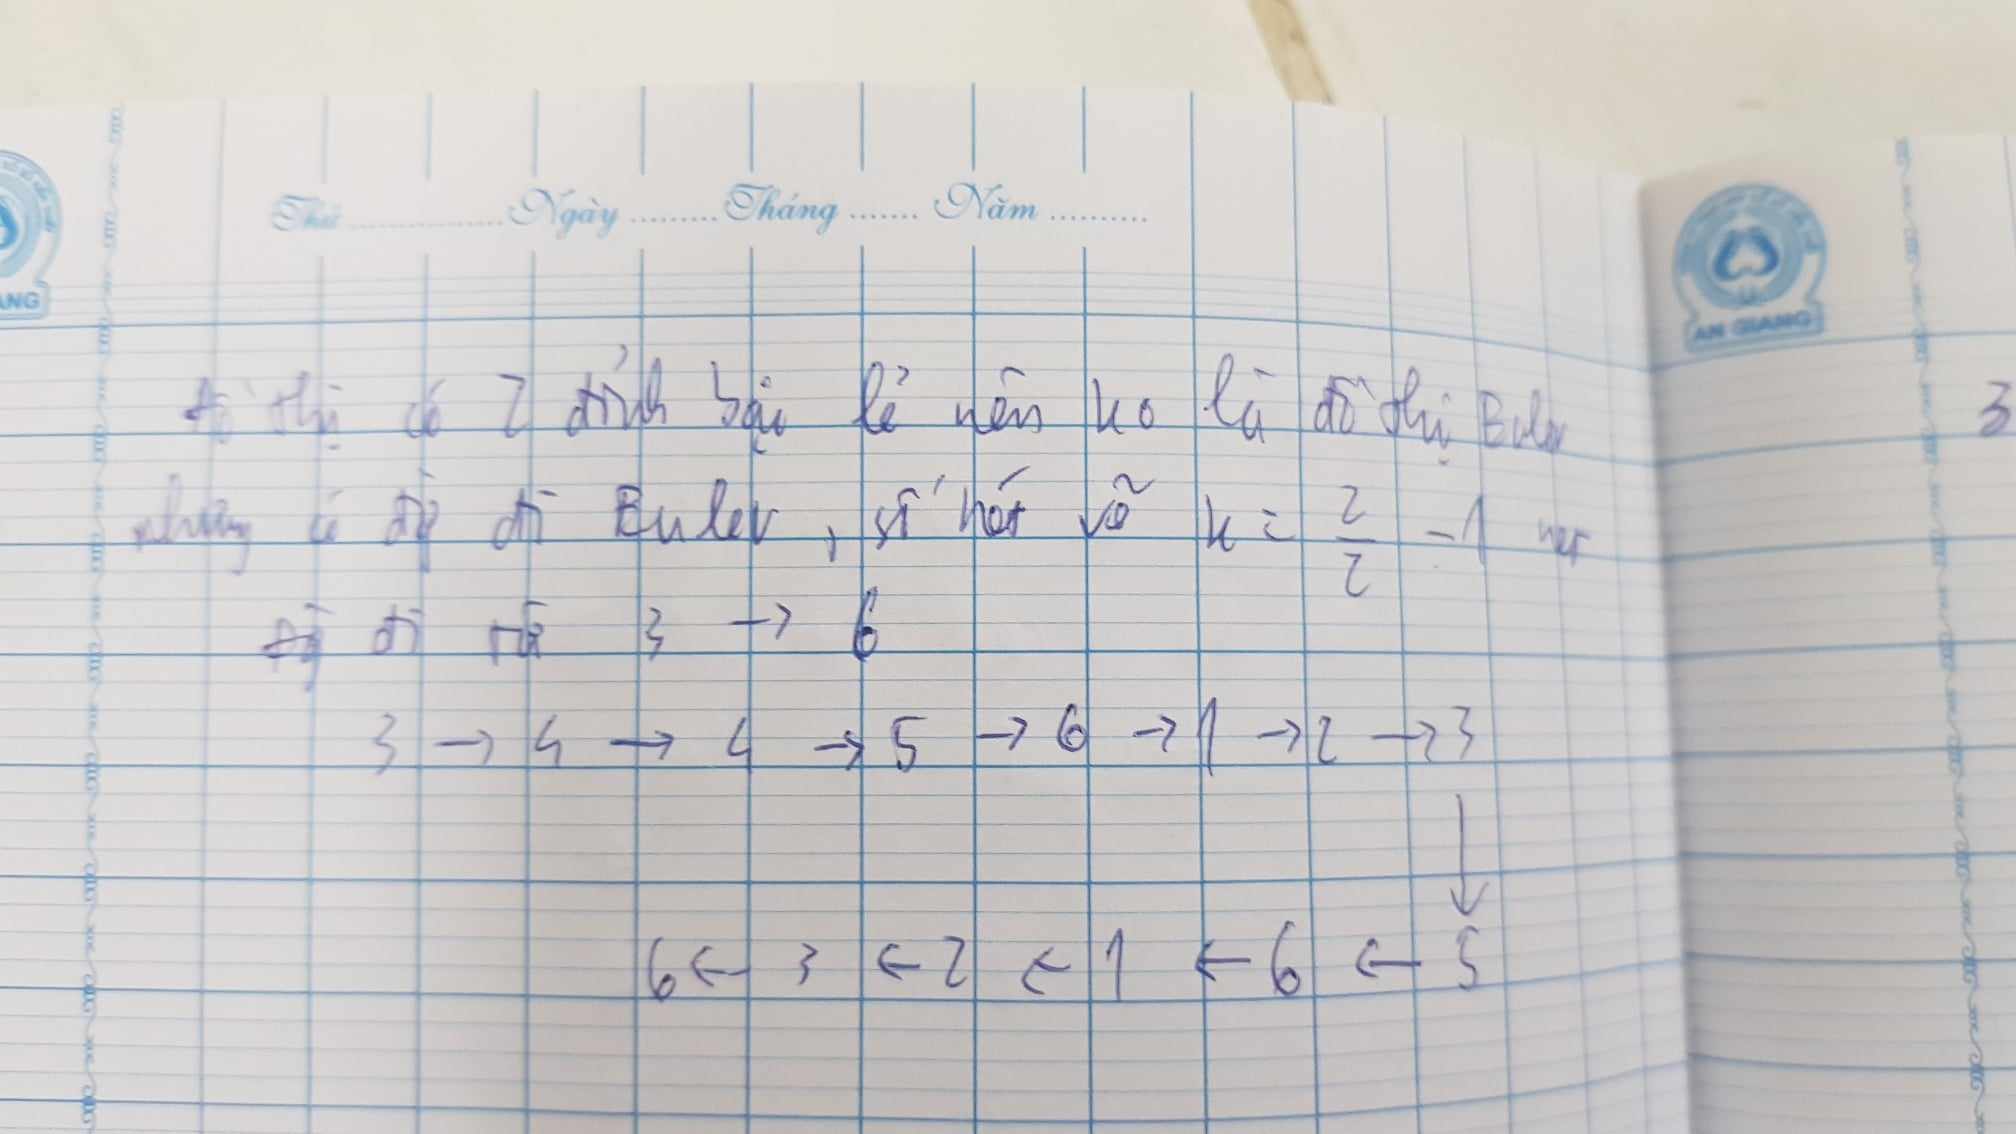 ANG
Thứ ............... Ngày ......... Tháng ....... Năm ..........
AN GIANG
Đồ thị có 2 đỉnh bậc lẻ nên ko là đồ thị Euler
3
nhưng có đg đi Euler, số nét vẽ k = 2/2 - 1 nét
Đg đi từ 3 → 6
3 → 4 → 4 → 5 → 6 → 1 → 2 → 3
↓
6 ← 3 ← 2 ← 1 ← 6 ← 5